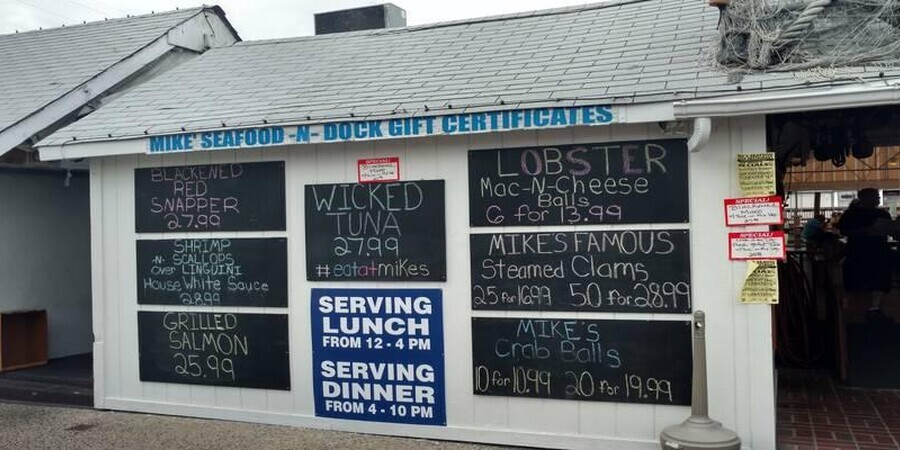 MIKE' SEAFOOD -N- DOCK GIFT CERTIFICATES
BLACKENED
RED
SNAPPER
27.99
SHRIMP
-N- SCALLOPS
OVER LINGUINI
House White Sauce
28.99
GRILLED
SALMON
25.99
SPECIAL!
WICKED
TUNA
27.99
#eatatmikes
SERVING
LUNCH
FROM 12 - 4 PM
SERVING
DINNER
FROM 4 - 10 PM
LOBSTER
Mac-N-Cheese
Balls
6 for 13.99
MIKE'S FAMOUS
Steamed Clams
25 for 16.99 50 for 28.99
MIKE'S
Crab Balls
10 for 10.99 20 for 19.99
SPECIAL!
SPECIAL!